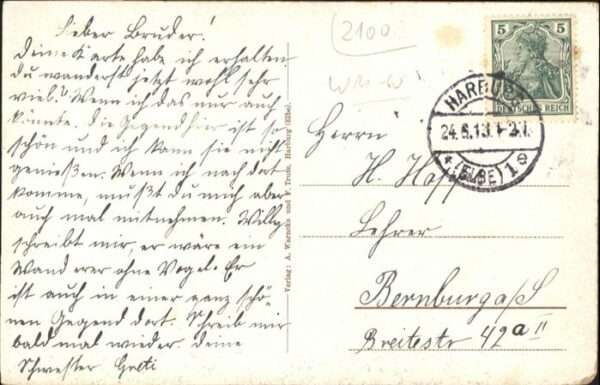 Lieber Bruder!
Deine Karte habe ich erhalten
du wanderst jetzt wohl sehr
viel? Wenn ich das nur auch
könnte. Die Gegend hier ist so
schön und ich kann sie nicht
genießen. Wenn ich nach dort
komme, mußt du mich aber
auch mal mitnehmen. Willy
schreibt mir, er wäre ein
Wanderer ohne Vogel. Er
ist auch in einer ganz schö-
nen Gegend dort. Schreib mir
bald mal wieder. Deine
Schwester
Verlag: A. Warnecke und F. Timm, Harburg (Elbe).
2100
5 5
DEUTSCHES REICH
HARBURG
24.6.13.1-2N.
* (ELBE) 1e
Herrn
H.
Lehrer
Bernburg a/S
Breitestr 42a II